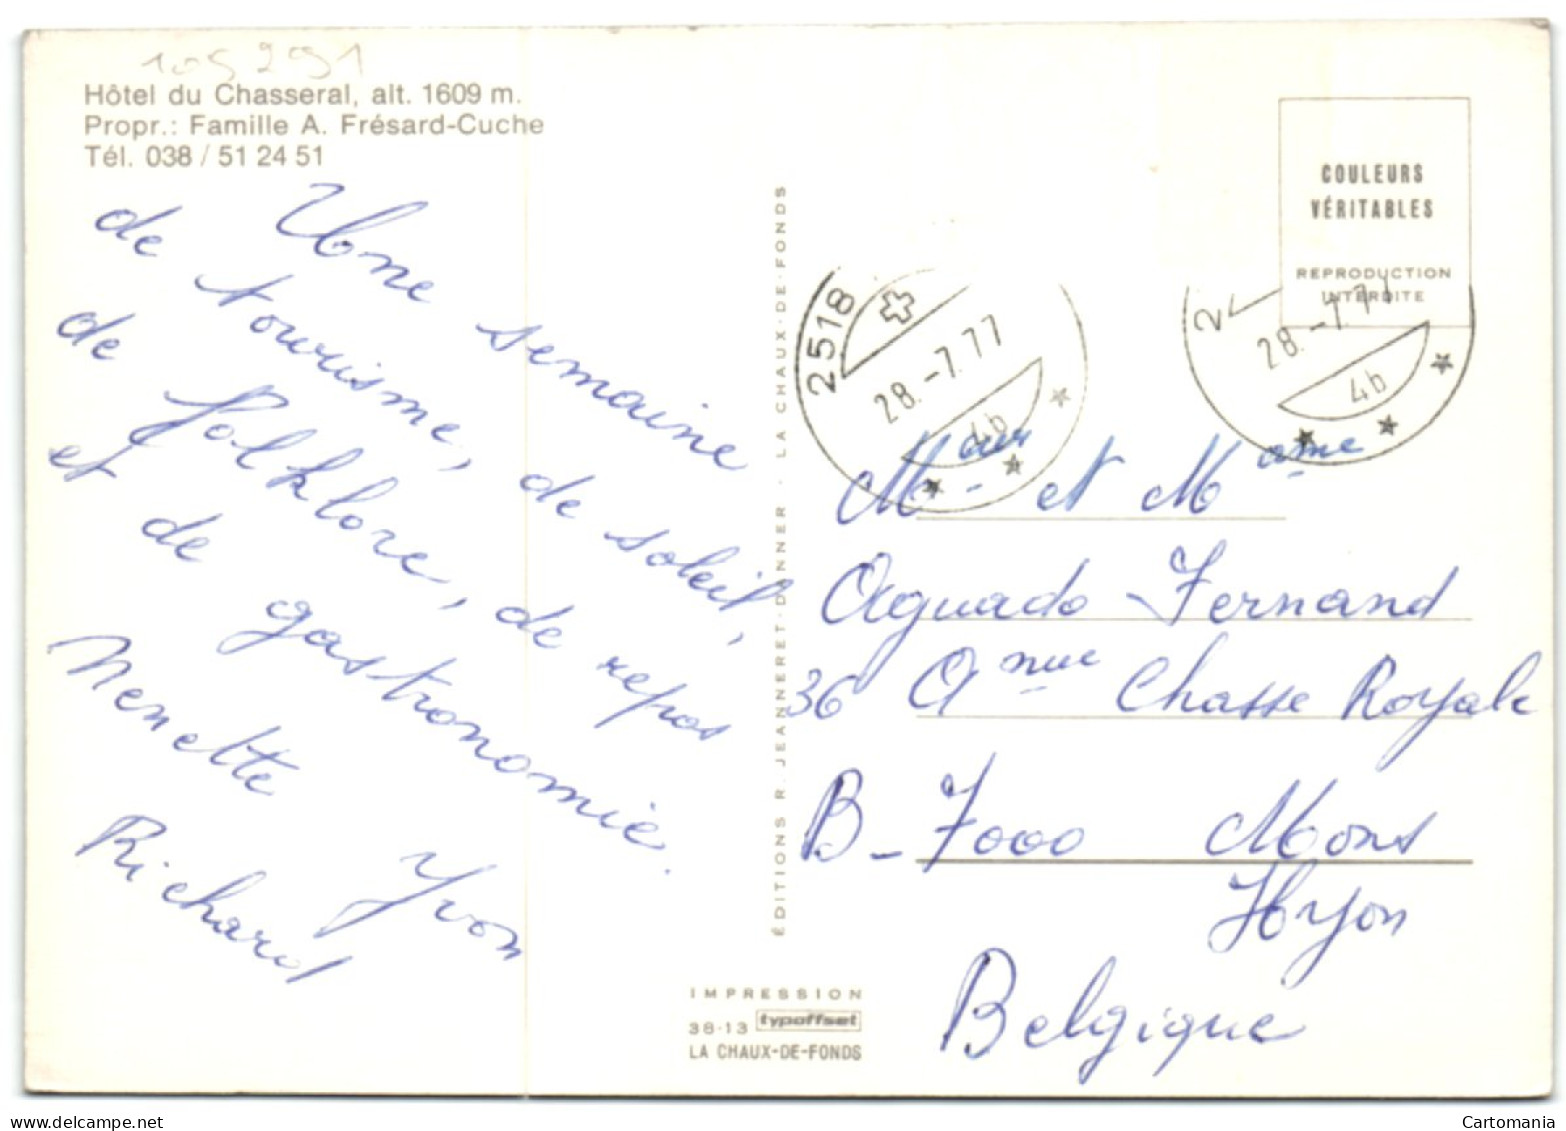 105291
Hôtel du Chasseral, alt. 1609 m.
Propr.: Famille A. Frésard-Cuche
Tél. 038 / 51 24 51
Une semaine
de tourisme, de soleil,
de folklore, de repos
et de gastronomie.
Nenette Yvon
Richard
ÉDITIONS R. JEANNERET-DANNER - LA CHAUX-DE-FONDS
COULEURS
VÉRITABLES
REPRODUCTION
INTERDITE
2518
28.-7.77
4b
2
28.-7.77
4b
Meur et Mame
Aguado - Fernand
36 Anue Chasse Royale
B-7000 Mons
Hyon
Belgique
IMPRESSION
38-13 typoffset
LA CHAUX-DE-FONDS
delcampe.net
Cartomania